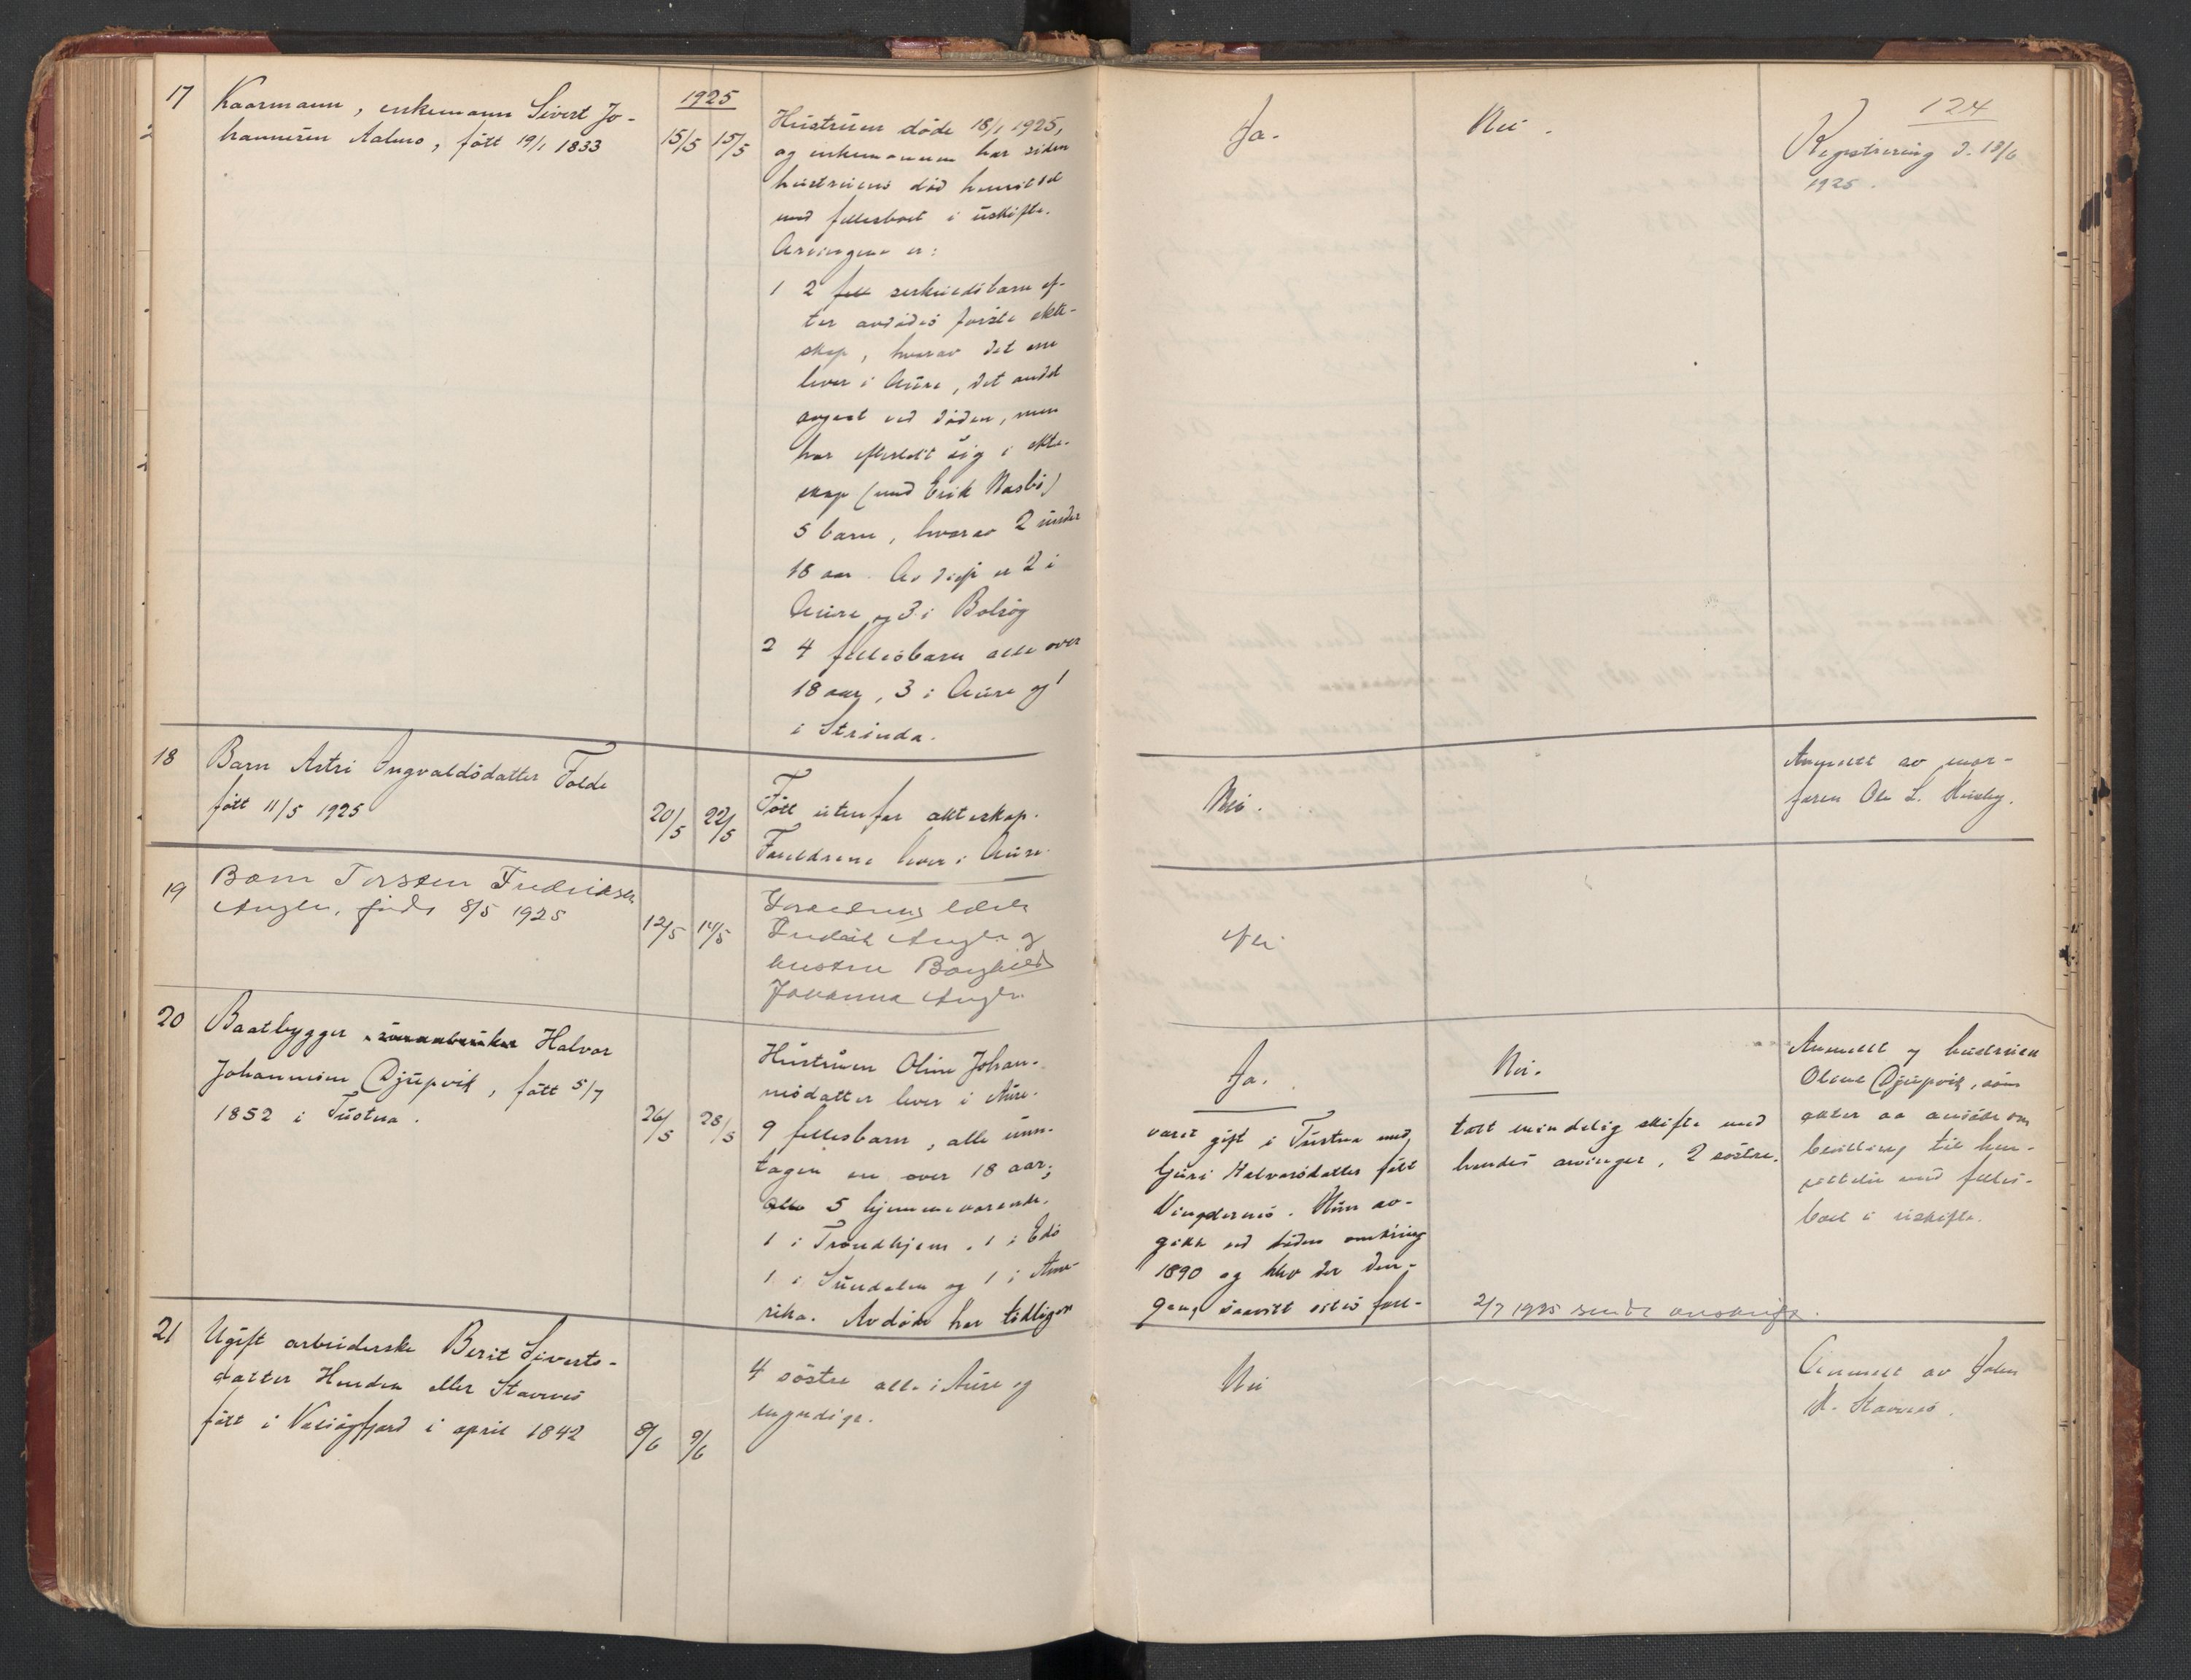 124
1925
17 Kaarmann, enkemann Sivert Jo-
hannesen Aalmo, født 19/1 1833
15/5 15/5
Hustruen døde 18/1 1925,
og enkemannen har siden
hustruens død hensittet
med fellesboet i uskifte.
Arvingene er:
1 2 særkuldsbarn ef-
ter avdødes første ekte-
skap, hvorav det ene
lever i Aure, det andet
avgaat ved døden, men
har efterlatt sig i ekte-
skap (med Erik Nasbø)
5 barn, hvorav 2 under
18 aar. Av disse er 2 i
Aure og 3 i Bolsøy
2 4 fellesbarn alle over
18 aar, 3 i Aure og 1
i Strinda.
Ja.
Nei.
Registrering d. 18/6
1925.
18 Barn Astri Ingvaldsdatter Folde
født 11/5 1925
20/5 22/5
Født utenfor ekteskap.
Foreldrene lever i Aure.
Nei.
Anmeldt av mor-
faren Ole L.
19 Barn Torsten Fredriksen
8/5 1925
12/5 14/5
Foreldrene
Fredrik og
hustru Borghild
Johanna
Nei
20 Baatbygger Halvor
Johannesen Djupvik, født 5/7
1852 i Tustna.
26/5 28/5
Hustruen Oline Johan-
nesdatter lever i Aure.
9 fellesbarn, alle unn-
tagen en over 18 aar;
5 hjemmeværende.
1 i Trondhjem, 1 i Edø
1 i Sundalen og 1 i Ame-
rika. Avdøde har tidligere
Ja.
været gift i Tustna med
Guri Halvorsdatter født
Hun av-
gikk ved døden omkring
1890 og blev der den-
gang saavitt vites fore-
Nei.
tatt mindelig skifte med
hendes arvinger, 2 søstre.
2/7 1925 sendt
Anmeldt og hustruen
Oline Djupvik, som
akter aa ansøke om
bevilling til hen-
sittelse med felles-
boet i uskifte.
21 Ugift arbeiderske Berit Siverts-
datter Henden eller Stavnes
født i Valsøyfjord i april 1842
8/6 9/6
4 søstre alle i Aure og
myndige.
Nei
Anmeldt av John
Stavnes.